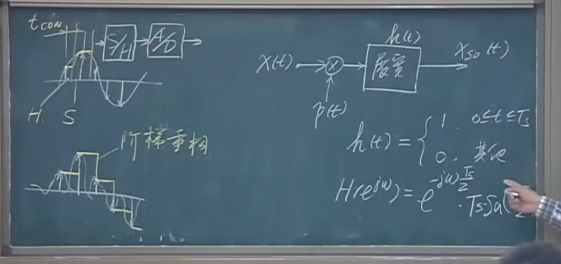 tCON
S/H
A/D
H S
阶梯重构
h(t)
x(t) × 展宽 xS0(t)
p(t)
h(t) = { 1, 0≤t≤Ts
0, 其他
H(e^{jω}) = e^{-jω Ts/2} · TsSa(